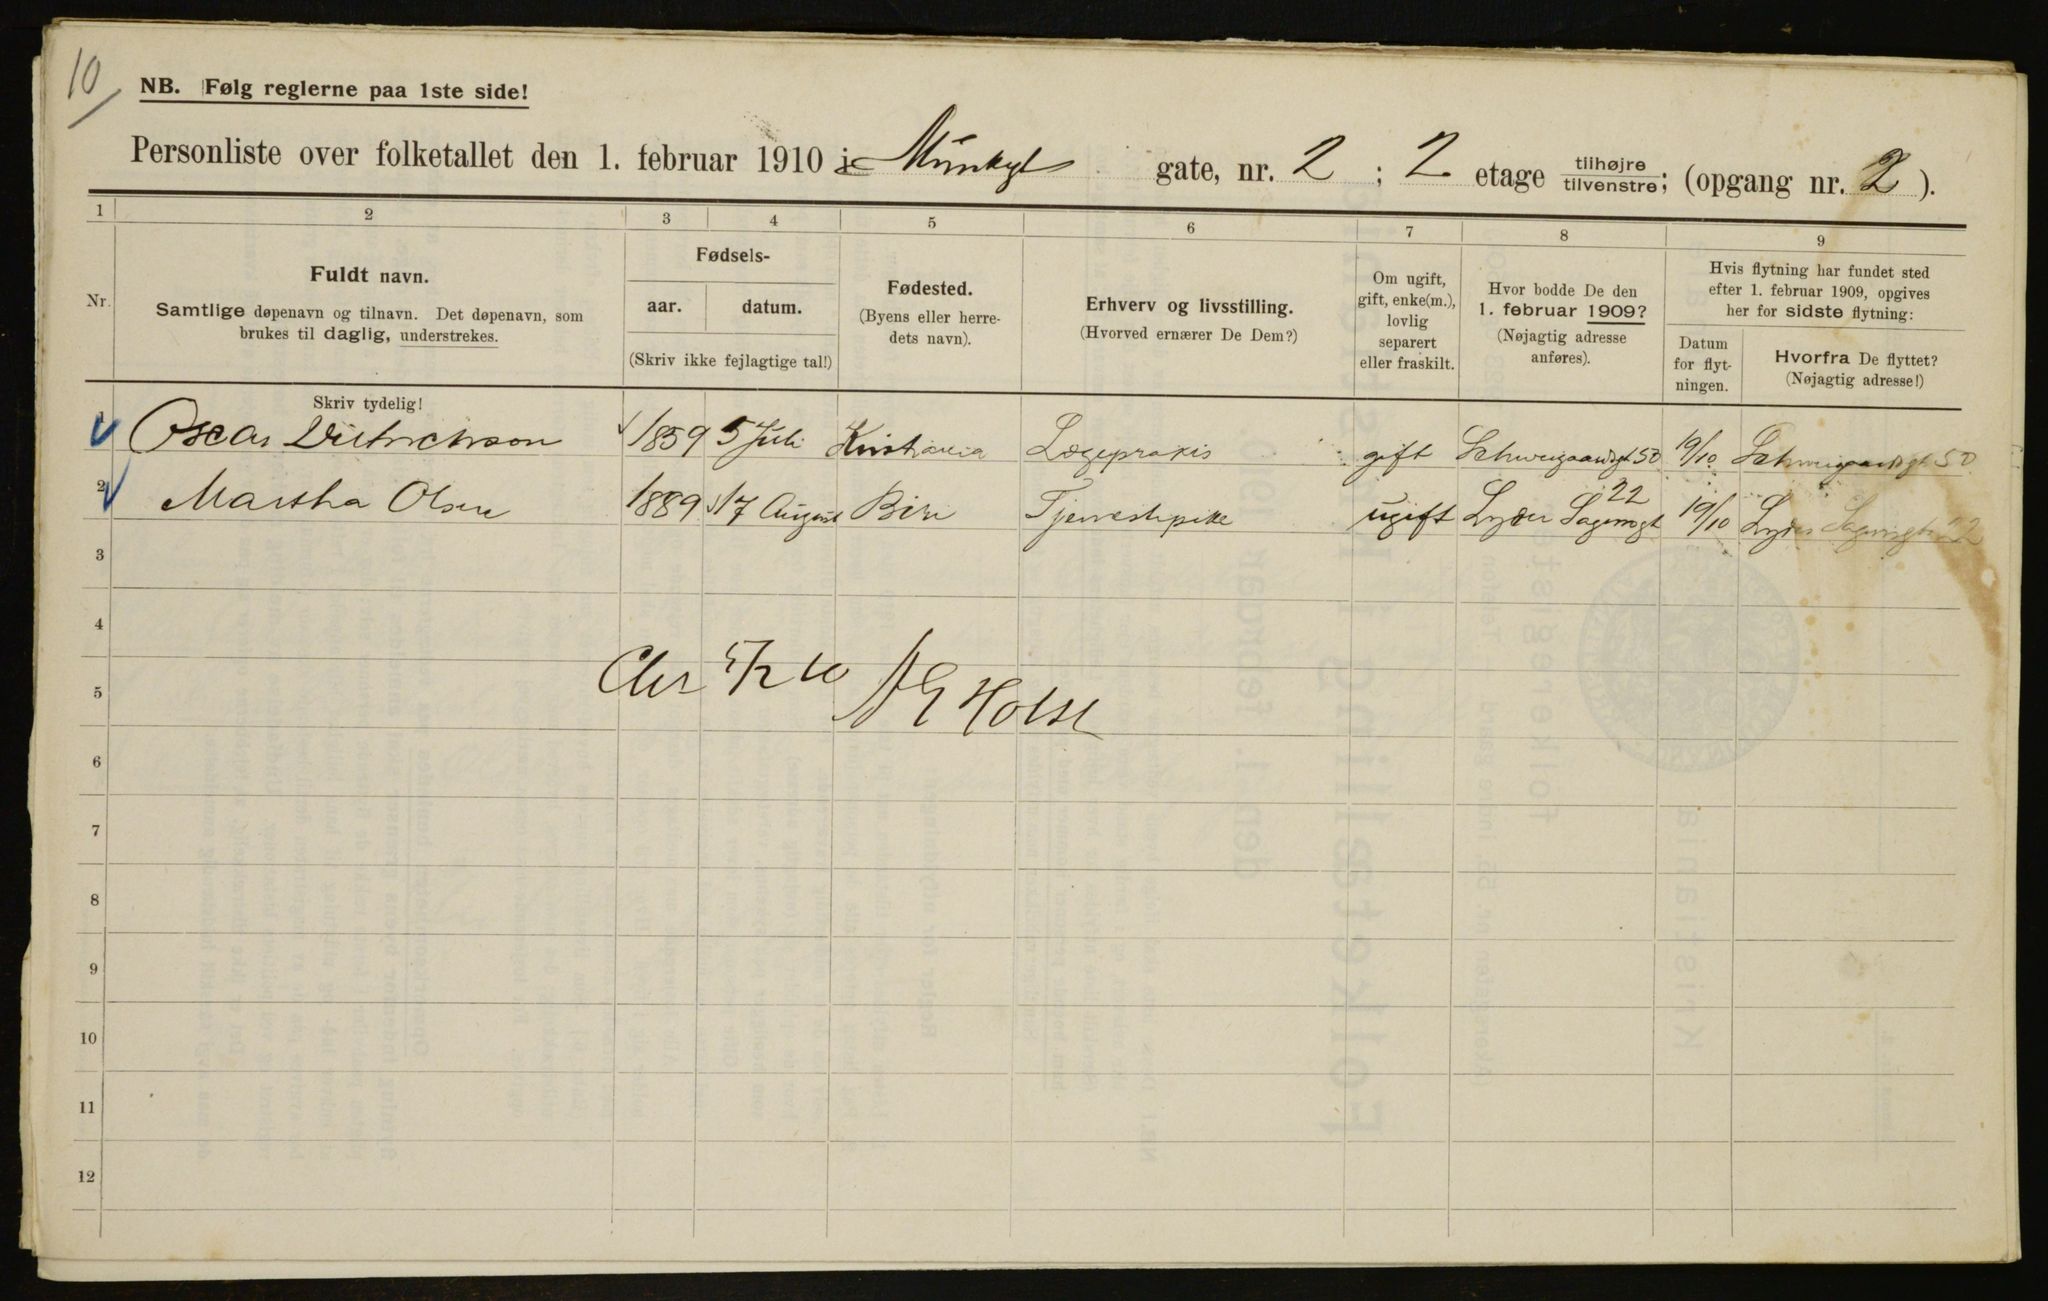 10
NB. Følg reglerne paa 1ste side!
Personliste over folketallet den 1. februar 1910 i Munkegt gate, nr. 2 ; 2 etage tilhøjre/tilvenstre; (opgang nr. 2 ).
1 2 3 4 5 6 7 8 9
Nr.
Fuldt navn.
Samtlige døpenavn og tilnavn. Det døpenavn, som
brukes til daglig, understrekes.
Skriv tydelig!
Fødsels-
aar. datum.
(Skriv ikke fejlagtige tal!)
Fødested.
(Byens eller herre-
dets navn).
Erhverv og livsstilling.
(Hvorved ernærer De Dem?)
Om ugift,
gift, enke(m.),
lovlig
separert
eller fraskilt.
Hvor bodde De den
1. februar 1909?
(Nøjagtig adresse
anføres).
Hvis flytning har fundet sted
efter 1. februar 1909, opgives
her for sidste flytning:
Datum
for flyt-
ningen.
Hvorfra De flyttet?
(Nøjagtig adresse!)
1 Oscar Dietrichson 1859 5 Juli Kristiania Lægepraksis gift Schweigaardsgt 50 19/10 Schweigaardsgt 50
2 Martha Olsen 1889 17 August Biri Tjenestepike ugift Lyder Sagensgt 22 19/10 Lyder Sagensgt 22
3
4
Chr 5/2 10 Holst
5
6
7
8
9
10
11
12